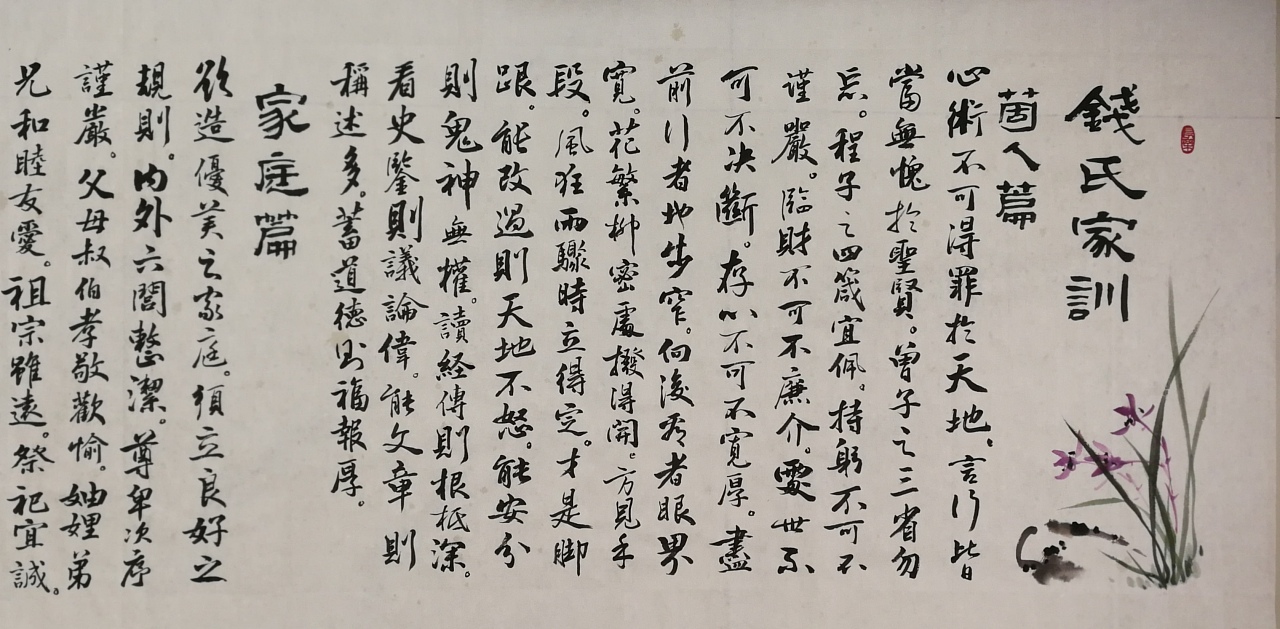 錢氏家訓
箇人篇
心術不可得罪於天地、言行皆
當無愧於聖賢。曾子之三省勿
忘。程子之四箴宜佩。持躬不可不
謹嚴。臨財不可不廉介。處世不
可不决斷。存心不可不寬厚。盡
前行者地步窄。向後看者眼界
寬。花繁柳密處撥得開。方見手
段。風狂雨驟時立得定。才是脚
跟。能改過則天地不怒。能安分
則鬼神無權。讀経傳則根柢深。
看史鑒則議論偉。能文章則
稱述多。蓄道德則福報厚。
家庭篇
欲造優美之家庭。須立良好之
規則。內外六閭整潔。尊卑次序
謹嚴。父母叔伯孝敬歡愉。妯娌弟
兄和睦友愛。祖宗雖遠。祭祀宜誠。